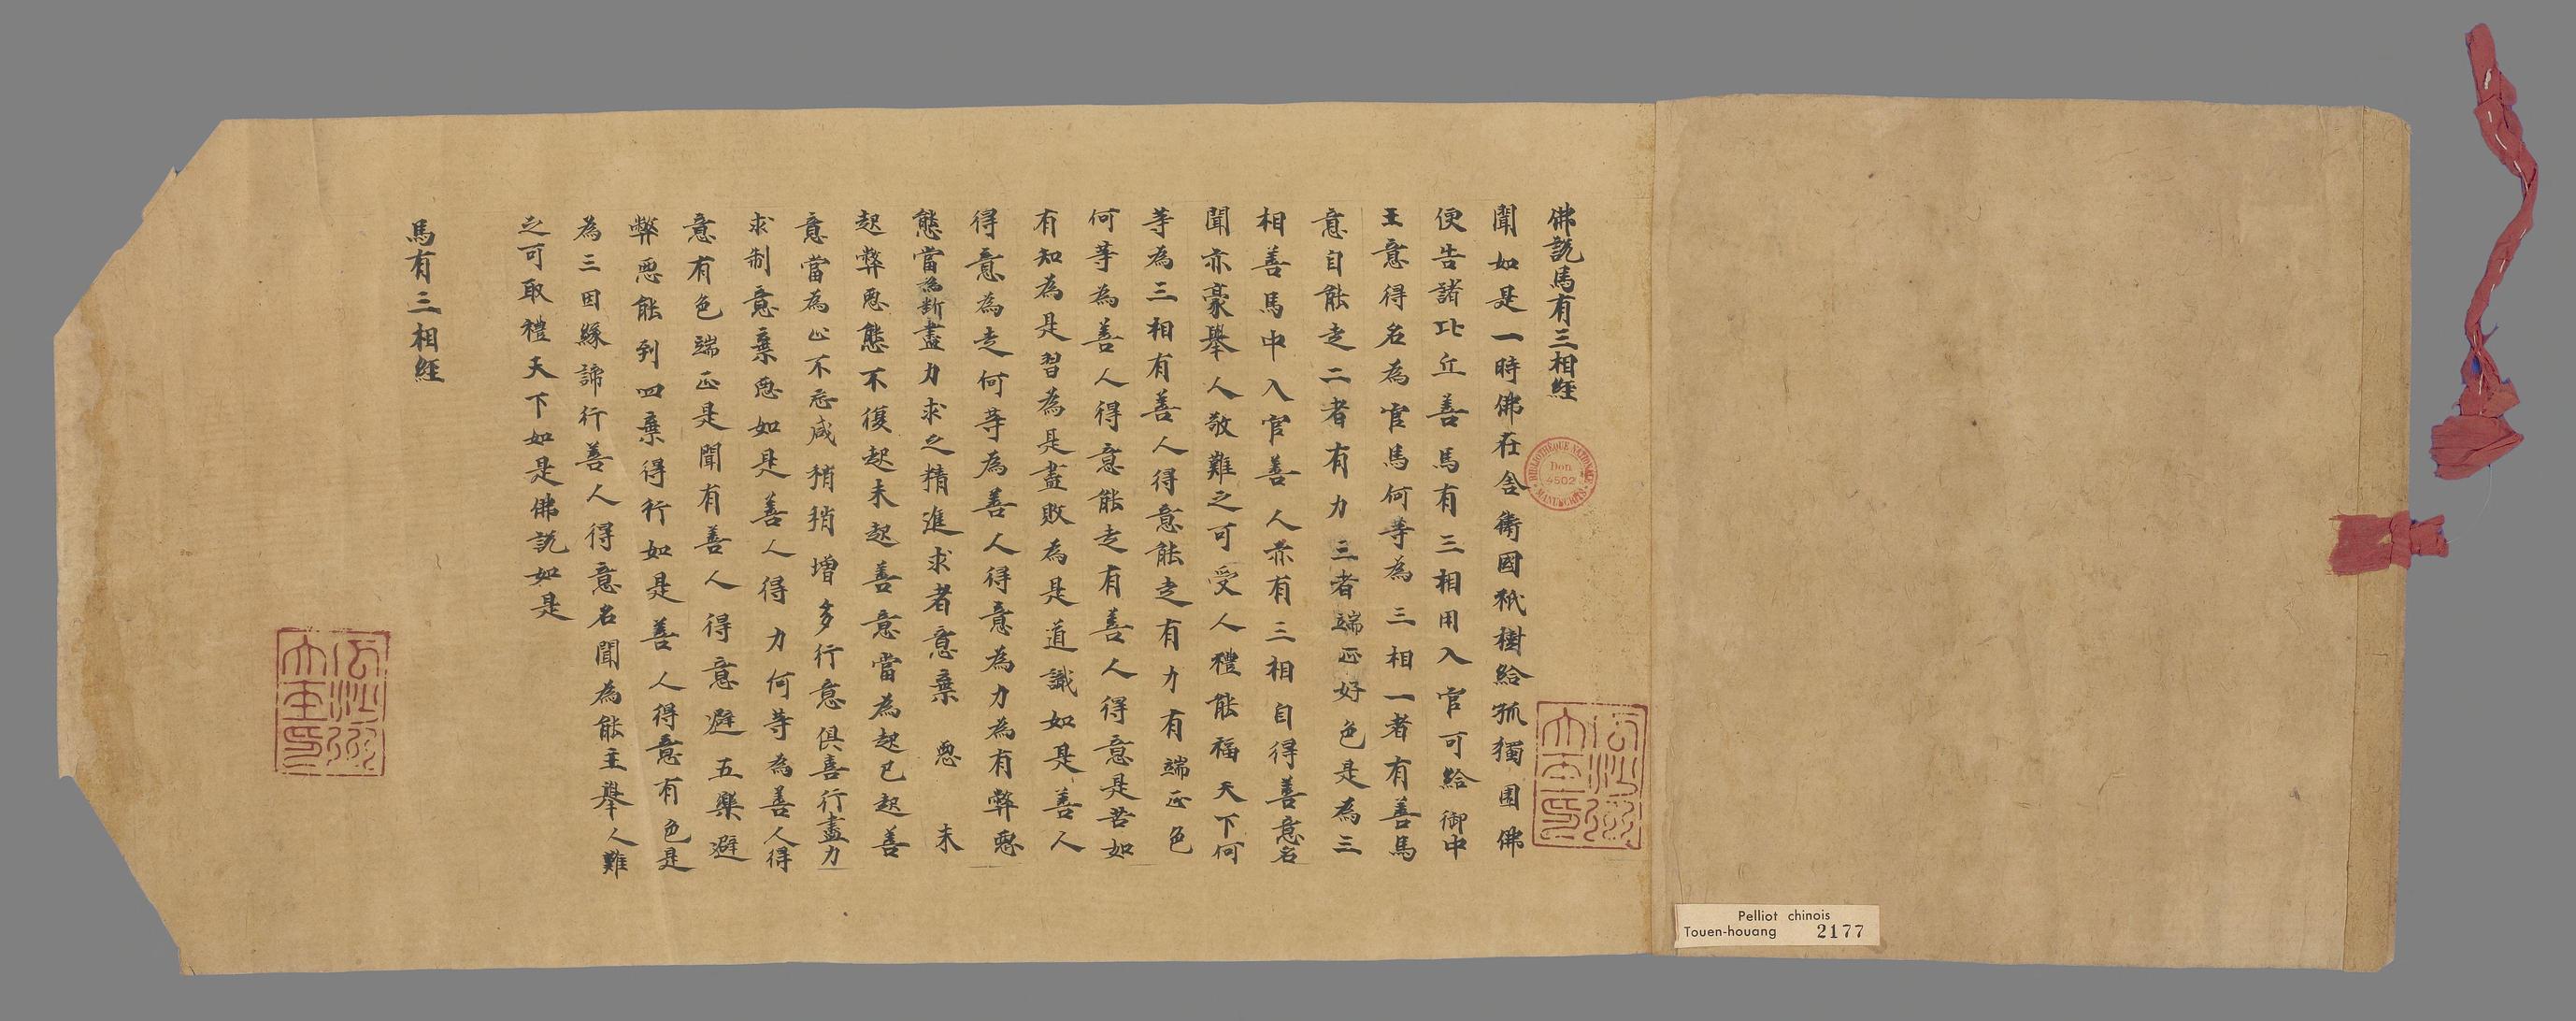 佛說馬有三相經
聞如是一時佛在舍衛國祇樹給孤獨園佛
便告諸比丘善馬有三相用入官可給御中
王意得名為官馬何等為三相一者有善馬
意自能走二者有力三者端正好色是為三
相善馬中入官善人亦有三相自得善意名
聞亦豪舉人敬難之可受人禮能福天下何
等為三相有善人得意能走有力有端正色
何等為善人得意能走有善人得意是苦如
有知為是習為是盡敗為是道識如是善人
得意為走何等為善人得意為力為有弊惡
態當為斷盡力求之精進求者意棄惡未
起弊惡態不復起未起善意當為起已起善
意當為止不忘咸稍稍增多行意俱喜行盡力
求制意棄惡如是善人得力何等為善人得
意有色端正是聞有善人得意避五樂避
弊惡能到四棄得行如是善人得意有色是
為三因緣諦行善人得意名聞為能主舉人難
之可取禮天下如是佛說如是
馬有三相經
BIBLIOTHÈQUE NATIONALE
Don
4502
MANUSCRITS
Pelliot chinois
Touen-houang 2177